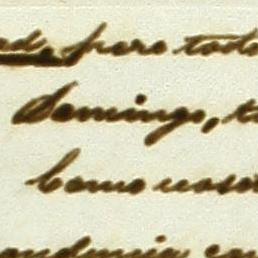 ad, pero todo
Domingo, t
Como uoso
ondencia con